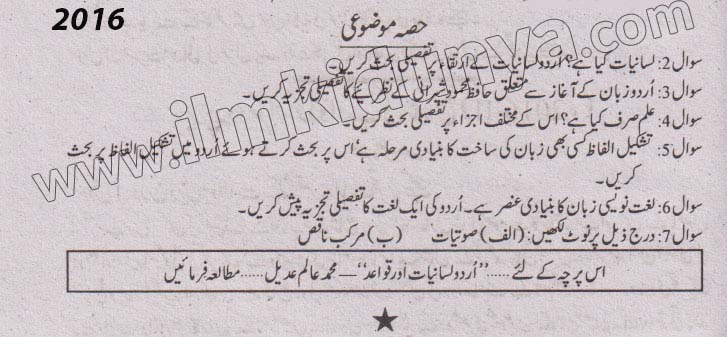 2016
حصہ موضوعی
سوال 2: لسانیات کیا ہے؟ اُردو لسانیات کے ارتقاء پر تفصیلی بحث کریں۔
سوال 3: اُردو زبان کے آغاز سے متعلق حافظ محمود شیرانی کے نظریے کا تفصیلی تجزیہ کریں۔
سوال 4: علم صرف کیا ہے؟ اس کے مختلف اجزاء پر تفصیلی بحث کریں۔
سوال 5: تشکیل الفاظ کسی بھی زبان کی ساخت کا بنیادی مرحلہ ہے اس پر بحث کرتے ہوئے اُردو میں تشکیل الفاظ پر بحث
کریں۔
سوال 6: لغت نویسی زبان کا بنیادی عنصر ہے۔ اُردو کی ایک لغت کا تفصیلی تجزیہ پیش کریں۔
سوال 7: درج ذیل پر نوٹ لکھیں: (الف) صوتیات (ب) مرکب ناقص
اس پرچہ کے لئے ..... "اُردو لسانیات اور قواعد" — محمد عالم عدیل ..... مطالعہ فرمائیں
www.ilmkidunya.com
www.ilmkidunya.com